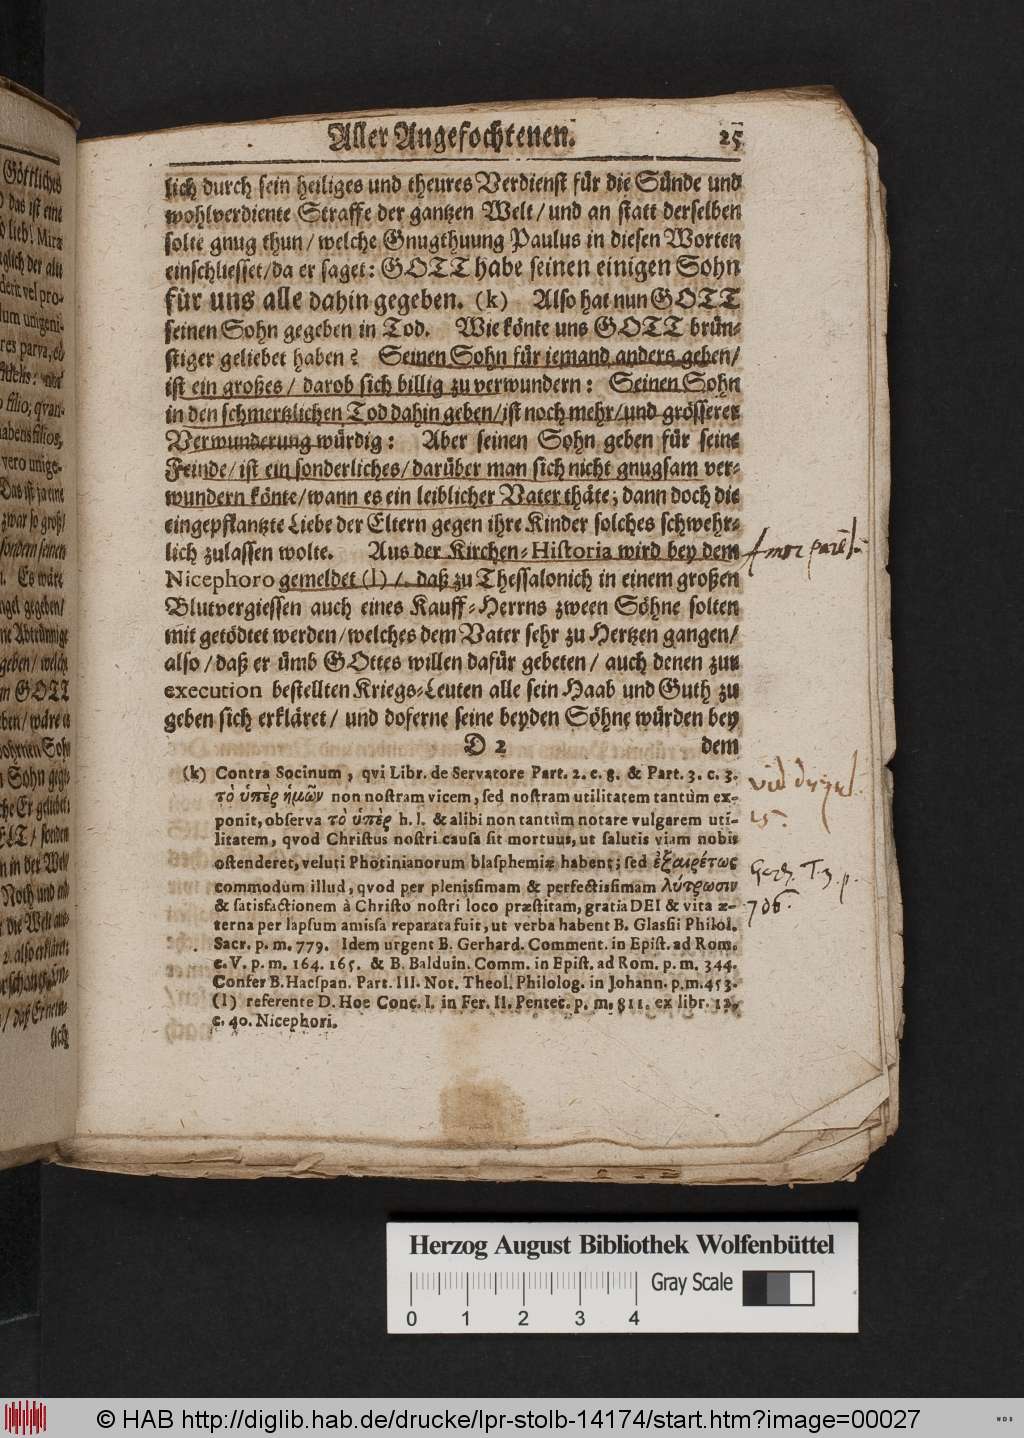 Aller Angefochtenen. 25
lich durch sein heiliges und theures Verdienst für die Sünde und
wohlverdiente Straffe der gantzen Welt / und an statt derselben
solte gnug thun / welche Gnugthuung Paulus in diesen Worten
einschliesset / da er saget: GOTT habe seinen einigen Sohn
für uns alle dahin gegeben. (k) Also hat nun GOTT
seinen Sohn gegeben in Tod. Wie könte uns GOTT brün-
stiger geliebet haben? Seinen Sohn für jemand anders geben /
ist ein großes / darob sich billig zu verwundern: Seinen Sohn
in den schmertzlichen Tod dahin geben / ist noch mehr / und grösserer
Verwunderung würdig: Aber seinen Sohn geben für seine
Feinde / ist ein sonderliches / darüber man sich nicht gnugsam ver-
wundern könte / wann es ein leiblicher Vater thäte; dann doch die
eingepflantzte Liebe der Eltern gegen ihre Kinder solches schwehr-
lich zulassen wolte. Aus der Kirchen-Historia wird bey dem
Nicephoro gemeldet (l) / daß zu Thessalonich in einem großen
Blutvergiessen auch eines Kauff-Herrns zween Söhne solten
mit getödtet werden / welches dem Vater sehr zu Hertzen gangen /
also / daß er ümb GOttes willen dafür gebeten / auch denen zur
execution bestellten Kriegs-Leuten alle sein Haab und Guth zu
geben sich erkläret / und doferne seine beyden Söhne würden bey
D 2 dem
(k) Contra Socinum, qvi Libr. de Servatore Part. 2. c. 8. & Part. 3. c. 3.
τὸ ὑπὲρ ἡμῶν non nostram vicem, sed nostram utilitatem tantùm ex-
ponit, observa τὸ ὑπὲρ h. l. & alibi non tantùm notare vulgarem uti-
litatem, qvod Christus nostri causa sit mortuus, ut salutis viam nobis
ostenderet, veluti Photinianorum blasphemiæ habent; sed ἐξαιρέτως
commodum illud, qvod per plenissimam & perfectissimam λύτρωσιν
& satisfactionem à Christo nostri loco præstitam, gratia DEI & vita æ-
terna per lapsum amissa reparata fuit, ut verba habent B. Glassii Philol.
Sacr. p. m. 779. Idem urgent B. Gerhard. Comment. in Epist. ad Rom.
c. V. p. m. 164. 165. & B. Balduin. Comm. in Epist. ad Rom. p. m. 344.
Confer B. Hacspan. Part. III. Not. Theol. Philolog. in Johann. p. m. 453.
(l) referente D. Hoe Conc. I. in Fer. II. Pentec. p. m. 811. ex libr. 12.
c. 40. Nicephori.
Amor
15.
Gerh. T. 3. p.
706.
Göttliches
Mira
vel pro-
unigeni-
parva,
filio; qvan-
filios,
vero unige-
zwar so groß /
sondern seinen
Es wäre
gegeben /
geben / welch
GOTT
Sohn
Noch und
die Welt
lich
Herzog August Bibliothek Wolfenbüttel
Gray Scale
0 1 2 3 4
© HAB http://diglib.hab.de/drucke/lpr-stolb-14174/start.htm?image=00027